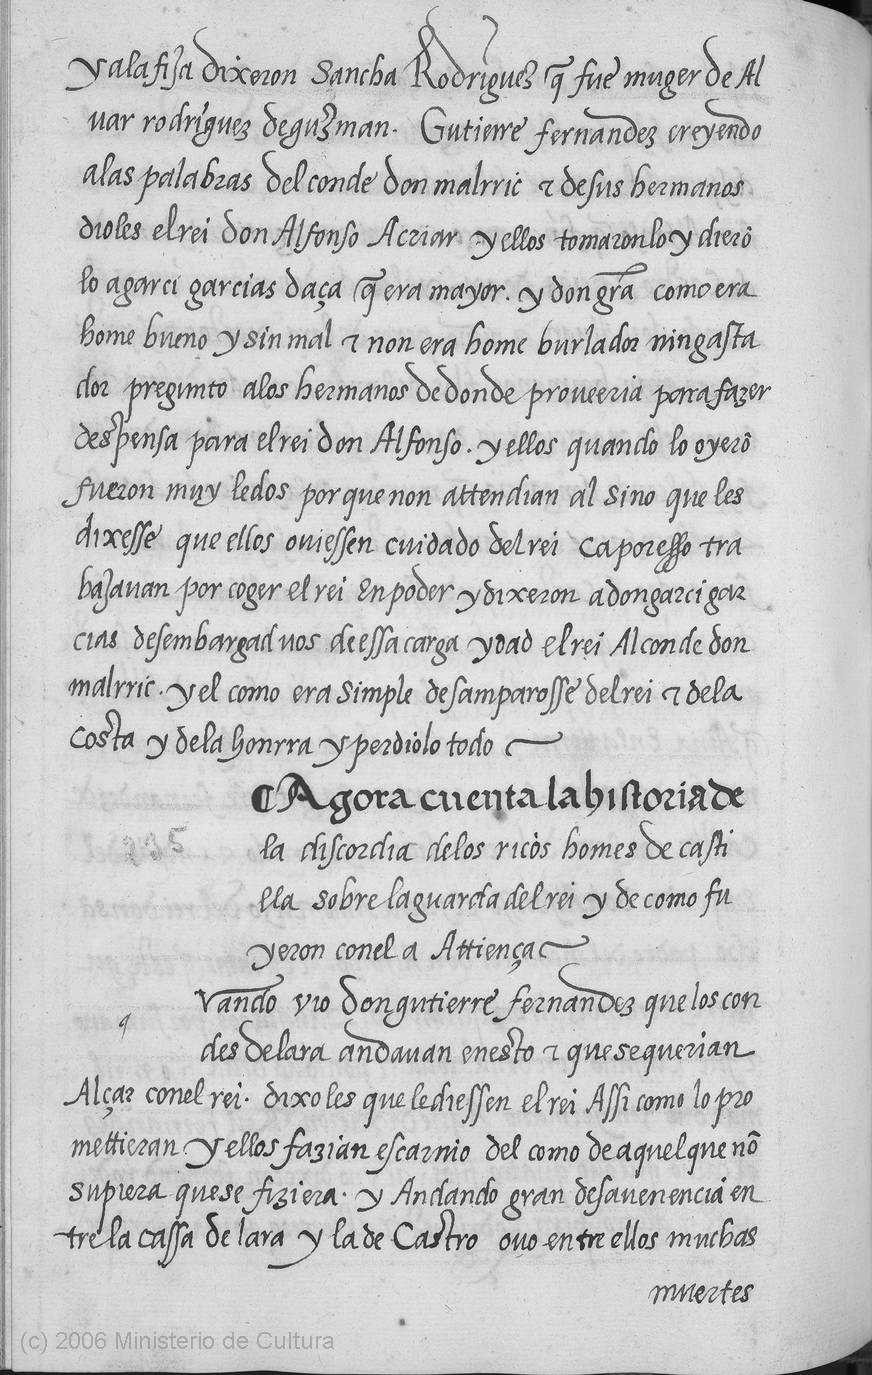 y a la fija dixeron Sancha Rodriguez q̃ fue muger de Al
uar rodriguez de guzman. Gutierre fernandez creyendo
a las palabras del conde don malrric τ de sus hermanos
dioles el rei don Alfonso A criar y ellos tomaronlo y dierõ
lo a garci garcias daça q̃ era mayor. y don gr̃a como era
home bueno y sin mal τ non era home burlador nin gasta
dor pregunto a los hermanos de donde proveeria para fazer
despensa para el rei don Alfonso. y ellos quando lo oyerõ
fueron muy ledos porque non attendian al sino que les
dixesse que ellos oviessen cuidado del rei ca por esso tra
bajauan por coger el rei en poder y dixeron a don garci gar
cias desembargad uos de essa carga y dad el rei Al conde don
malrric. y el como era simple desamparosse del rei τ de la
costa y de la honrra y perdiolo todo
¶ Agora cuenta la historia de
la discordia de los ricos homes de casti
ella sobre la guarda del rei y de como fu
yeron con el a Attiença
q
Vando vio don gutierre fernandez que los con
des de lara andauan en esto τ que se querian
Alçar con el rei. dixoles que le diessen el rei Assi como lo pro
mettieran y ellos fazian escarnio del como de aquel que nõ
supiera que se fiziera. y Andando gran desavenencia en
tre la cassa de lara y la de Castro ovo entre ellos muchas
muertes
235
(c) 2006 Ministerio de Cultura